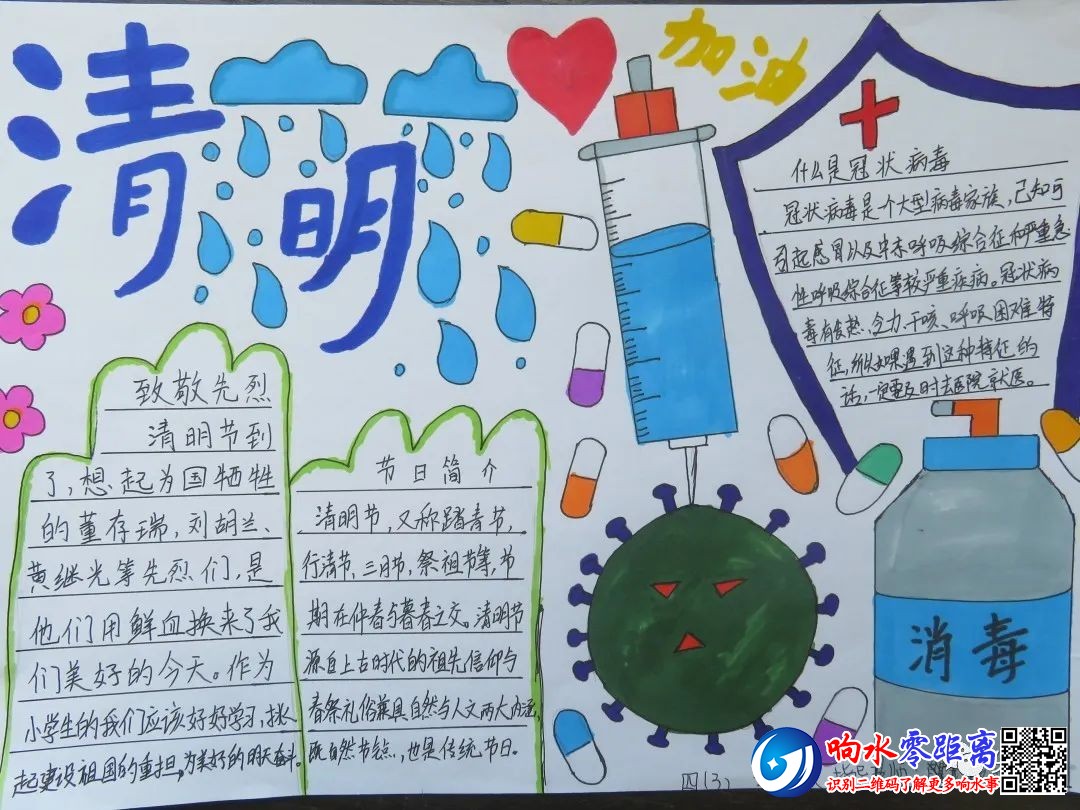 清明
加油
致敬先烈
清明节到
了,想起为国牺牲
的董存瑞,刘胡兰、
黄继光等先烈们,是
他们用鲜血换来了我
们美好的今天。作为
小学生的我们应该好好学习,挑
起建设祖国的重担,为美好的明天奋斗。
节日简介
清明节,又称踏青节,
行清节、三月节,祭祖节等,节
期在仲春与暮春之交。清明节
源自上古时代的祖先信仰与
春祭礼俗兼具自然与人文两大内涵,
既自然节点,也是传统节日。
什么是冠状病毒
冠状病毒是一个大型病毒家族,已知可
引起感冒以及中东呼吸综合征和严重急
性呼吸综合征等较严重疾病。冠状病
毒有发热、乏力、干咳、呼吸困难特
征,所以如果遇到这种特征的
话,一定要及时去医院就医。
消毒
四(3)
响水零距离
识别二维码了解更多响水事